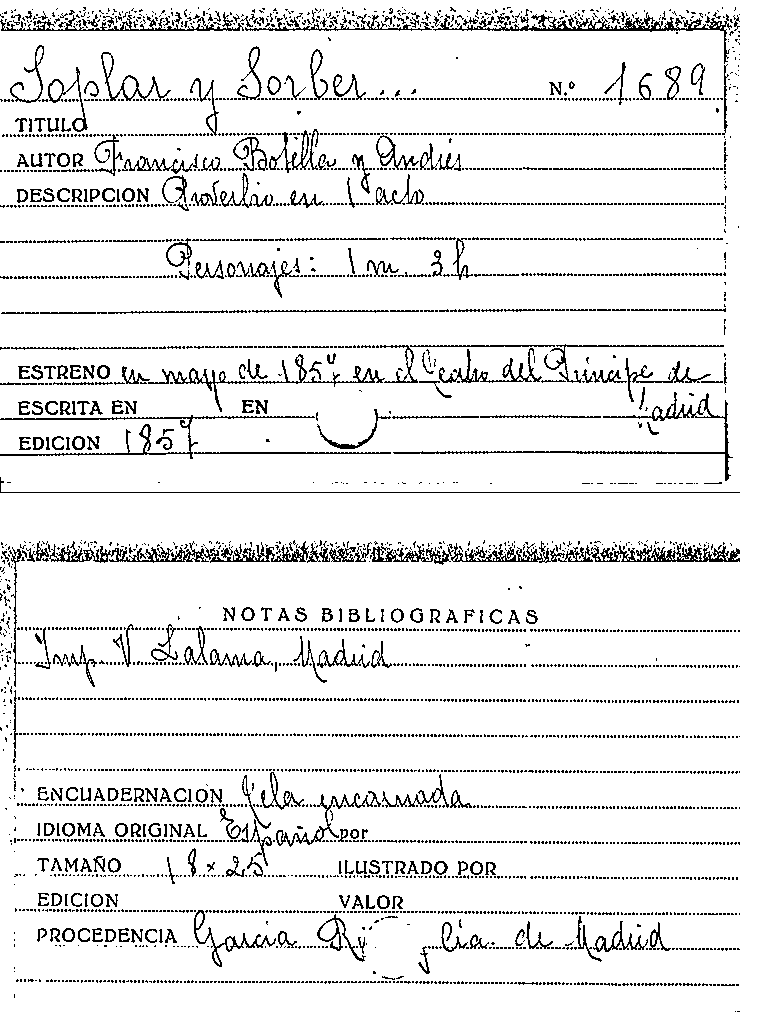 Soplar y Sorber... N.º 1689
TITULO
AUTOR Francisco Botella y Andrés
DESCRIPCION Proverbio en 1 acto
Personajes: 1 m. 3 h
ESTRENO en mayo de 1857 en el Teatro del Príncipe de
ESCRITA EN EN Madrid
EDICION 1857
NOTAS BIBLIOGRAFICAS
Imp. V. Lalama, Madrid
ENCUADERNACION Tela encarnada
IDIOMA ORIGINAL Español por
TAMAÑO 18 x 25 ILUSTRADO POR
EDICION VALOR
PROCEDENCIA García y Cía. de Madrid